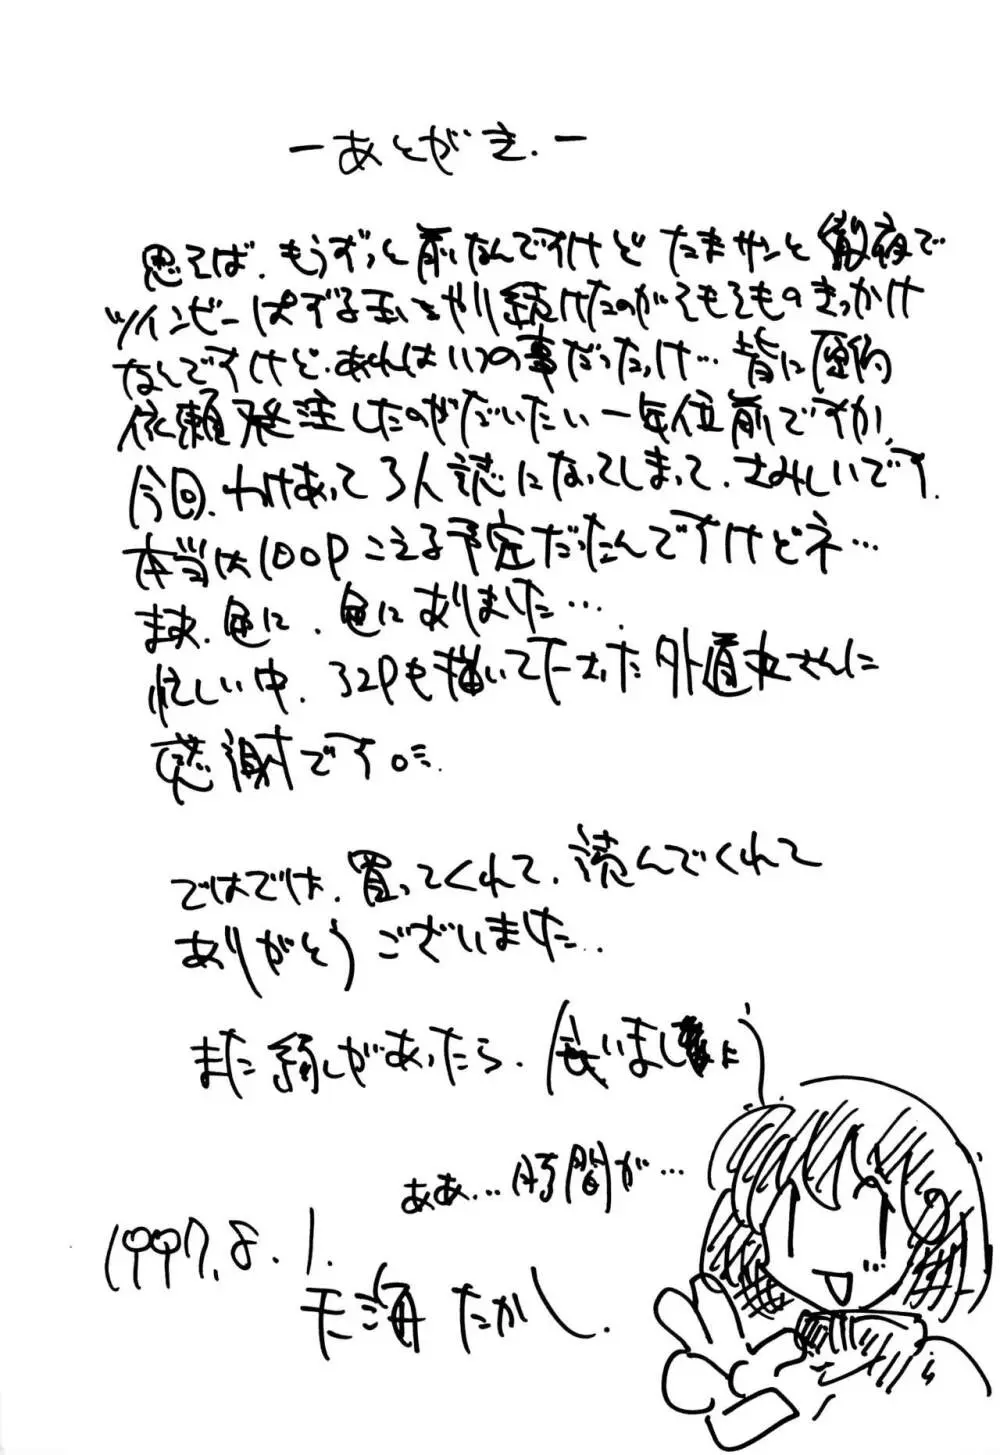 －あとがき.－
思えば、もうずっと前なんですけど たまサンと徹夜で
ツインビーぱずる玉をやり続けたのがそもそものきっかけ
なんですけど、あれはいつの事だったっけ…皆に原稿
依頼発注したのがだいたい一年位前ですか、
今回、わけあって3人誌になってしまって、さみしいです。
本当は100Pこえる予定だったんですけどネ…
まあ、色に、色にありました…
忙しい中、32Pも描いて下さった外道丸さんに
感謝です
ではでは、買ってくれて、読んでくれて
ありがとうございました..
また縁があったら、会いましょう
ああ…時間が…
1997.8.1.
天海 たかし.